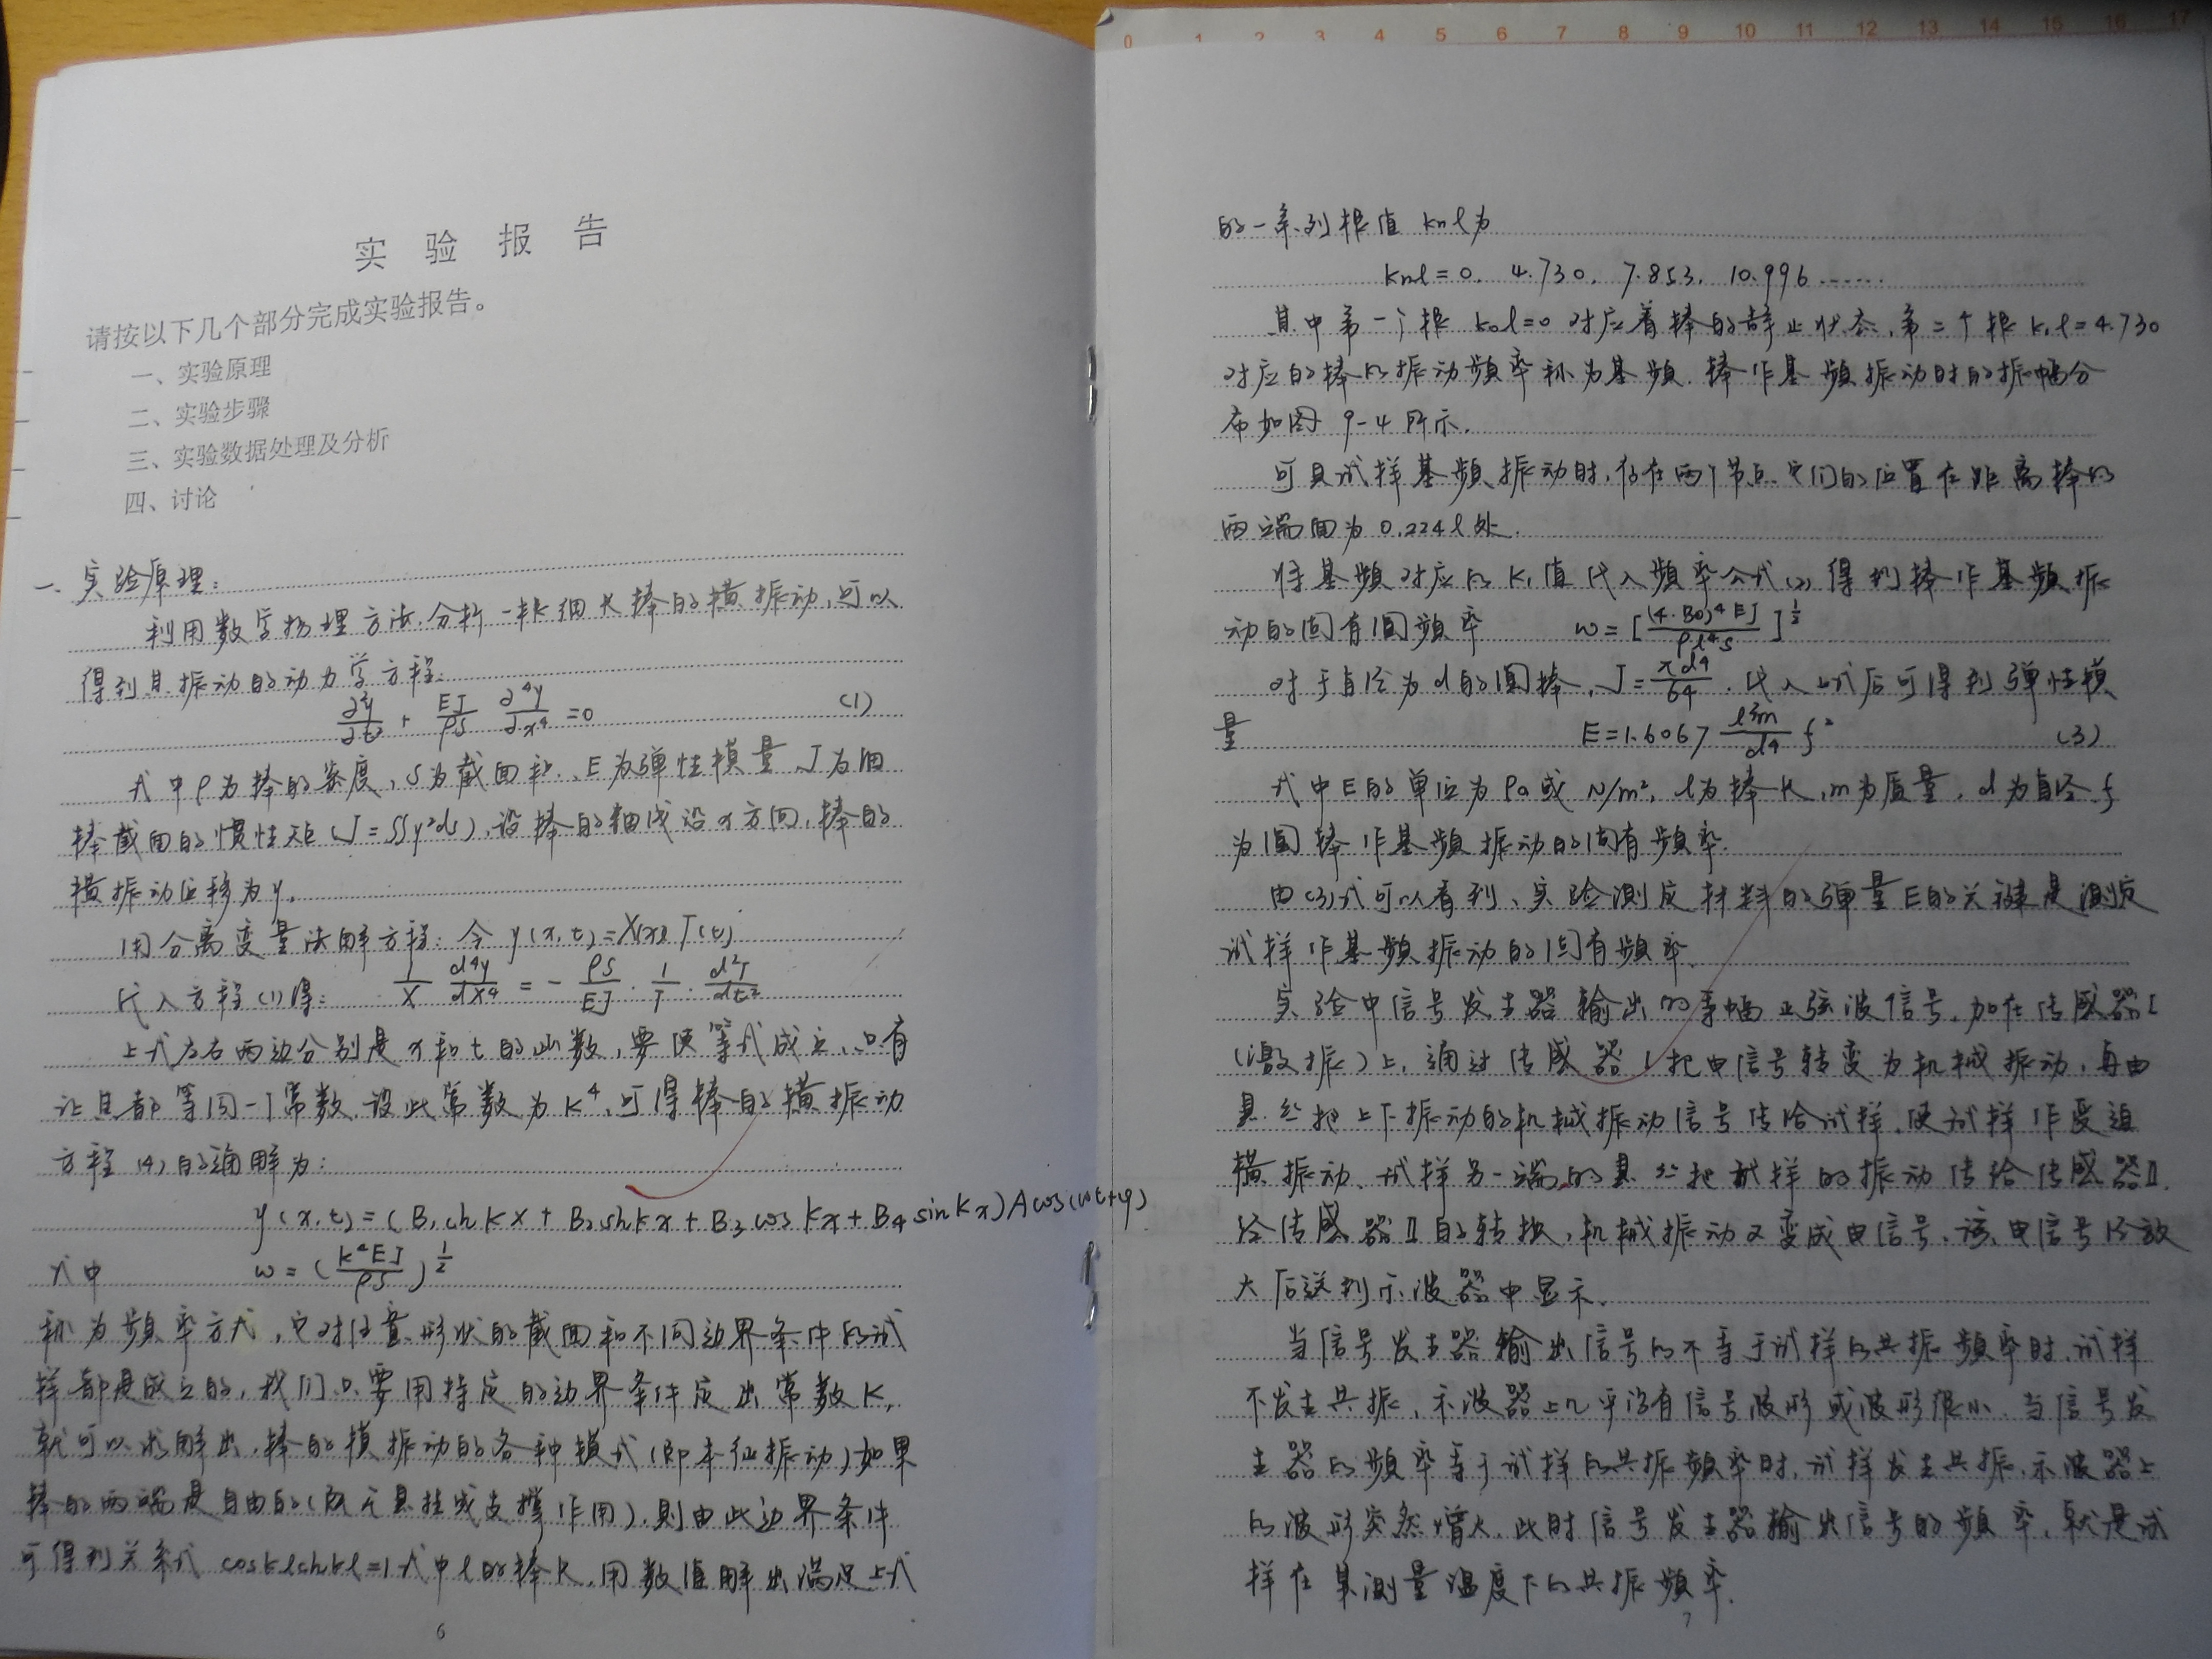 实验报告
请按以下几个部分完成实验报告。
一、实验原理
二、实验步骤
三、实验数据处理及分析
四、讨论
一、实验原理:
利用数学物理方法,分析一根细长棒的横振动,可以
得到其振动的动力学方程:
∂²y/∂t² + EJ/ρS ∂⁴y/∂x⁴ =0 (1)
式中ρ为棒的密度,S为截面积,E为弹性模量,J为细
棒截面的惯性矩(J=∬y²ds),设棒的轴线沿x方向,棒的
横振动位移为y。
用分离变量法解方程:令 y(x,t)=X(x) T(t)
代入方程(1)得: 1/X d⁴y/dX⁴ = - ρS/EJ · 1/T · d²T/dt²
上式左右两边分别是x和t的函数,要使等式成立,只有
让且都等同一个常数,设此常数为K⁴,可得棒的横振动
方程(4)的通解为:
y(x,t)=(B₁chKx+B₂shKx+B₃cosKx+B₄sinKx)Acos(ωt+φ)
式中 ω=(K⁴EJ/ρS)^½
称为频率方式,它对任意形状的截面和不同边界条件的试
样都是成立的,我们只要用特定的边界条件定出常数K,
就可以求解出,棒的横振动的各种模式(即本征振动)如果
棒的两端是自由的(既无悬挂或支撑作用),则由此边界条件
可得到关系式 cosklchkl=1 式中l的棒长,用数值解出满足上式
6
0 1 2 3 4 5 6 7 8 9 10 11 12 13 14 15 16 17
的一系列根值 knl为
knl=0, 4.730, 7.853, 10.996......
其中第一个根 k₀l=0 对应着棒的静止状态,第二个根 k₁l=4.730
对应的棒的振动频率称为基频,棒作基频振动时的振幅分
布如图9-4所示.
可见试样基频振动时,存在两个节点,它们的位置在距离棒的
两端面为0.224l处.
将基频对应的K₁值代入频率公式(2),得到棒作基频振
动的固有圆频率 ω=[(4.730)⁴EJ/ρl⁴S]^½
对于直径为d的圆棒,J=πd⁴/64,代入上式后可得到弹性模
量 E=1.6067 l³m/d⁴ f² (3)
式中E的单位为Pa或N/m²,l为棒长,m为质量,d为直径,f
为圆棒作基频振动的固有频率.
由(3)式可以看到,实验测定材料的弹量E的关键是测定
试样作基频振动的固有频率.
实验中信号发生器输出的等幅正弦波信号,加在传感器I
(激振)上,通过传感器I把电信号转变为机械振动,再由
悬丝把上下振动的机械振动信号传给试样,使试样作受迫
横振动,试样另一端的悬丝把试样的振动传给传感器Ⅱ,
经传感器Ⅱ的转换,机械振动又变成电信号,该电信号经放
大后送到示波器中显示.
当信号发生器输出信号的不等于试样的共振频率时,试样
不发生共振,示波器上几乎没有信号波形或波形很小.当信号发
生器的频率等于试样的共振频率时,试样发生共振,示波器上
的波形突然增大,此时信号发生器输出信号的频率,就是试
样在某测量温度下的共振频率.
7